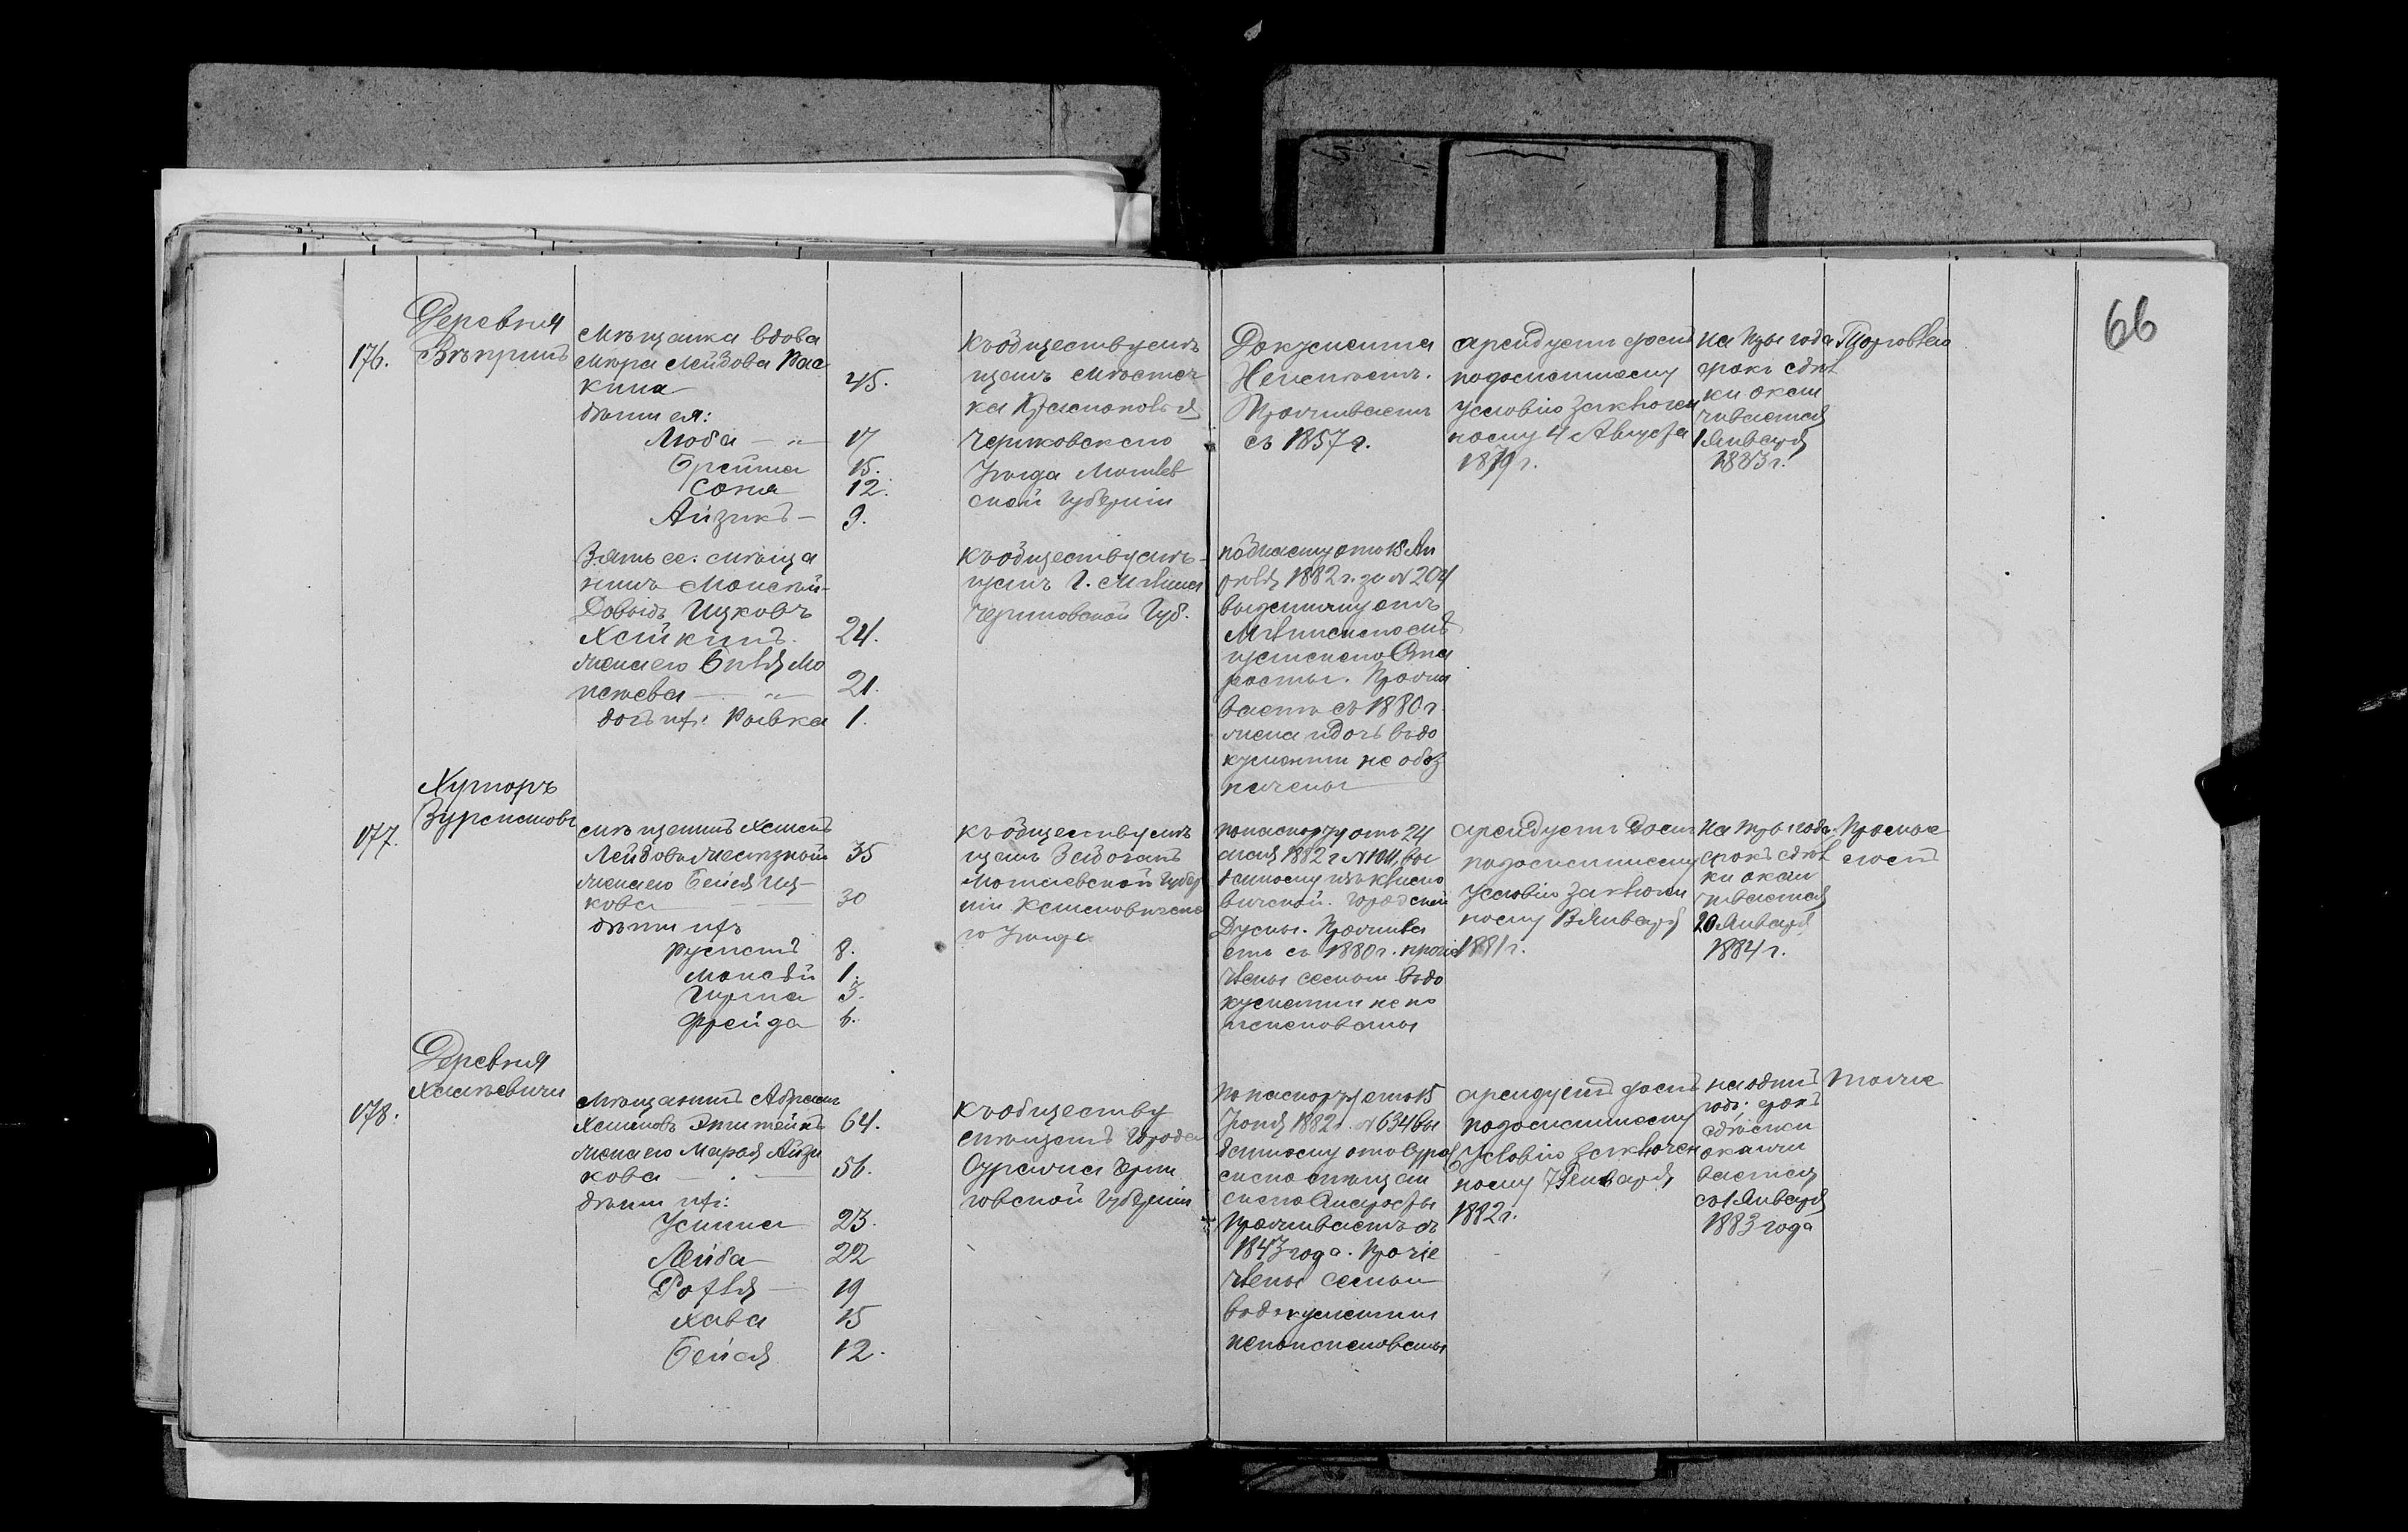 66
Деревня
176. Вепринъ
Мѣщанка вдова
Мира Лейбова Рас
кина 45.
дѣти ея:
Люба — „ — 17
Брейна 15.
Соня 12.
Айзикъ — 9.
Къ обществу мѣ
щанъ Мѣстеч
ка Краснополья
Чериковскаго
Уѣзда Могилев
ской Губерніи
Документа
Неимѣетъ.
Проживаетъ
съ 1857 г.
арендуетъ домъ
по домашнему
условію заключен
ному 4 Августа
1879 г.
на три года
срокъ сдѣл
ки окан
чивается
1 Января
1883 г.
Торговлею
Зять ее. мѣща
нинъ Мовсей-
Довыдъ Ицковъ
Хайкинъ. 24.
жена его Эйдля Мо
исеева — „ — 21.
дочь ихъ: Рывка 1.
Къ обществу мѣ-
щанъ г. Мглина
Черниговской Губ.
по билету отъ 18 Ап
рѣля 1882 г. за № 204
выданному отъ
Мглинскаго мѣ
щанскаго Ста
росты. Прожи
ваетъ съ 1880 г.
жена и дочь въ до
кументѣ не обоз
начены
Хуторъ
177.
мѣщанинъ Хаимъ
Лейбовъ 35
жена его Бейля Иц-
кова — — 30
дѣти ихъ
8.
Мовсѣй 1.
3.
Фрейда 6.
Къ обществу мѣ
щанъ
Могилевской Губер
ніи Климовичска
го Уѣзда
по паспорту отъ 24
мая 1882 г № 1011, вы
данному изъ Климо
вичской. Городской
Думы. Прожива
етъ съ 1880 г. прочіе
члены семьи въ до
кументѣ не по
именованы
арендуетъ домъ
по домашнему
условію заключен
ному Января
1881 г.
На три года.
срокъ сдѣл
ки окан
чивается
20 Января
1884 г.
Деревня
178. Халѣевичи
Мѣщанинъ Абрамъ
Хаимовъ 64.
жена его Марья Айзи
кова — . — 56.
дѣти ихъ:
23.
Лейба 22
19
Хава 15
Бейля 12.
Къ обществу
мѣщанъ города
Суража Черни
говской Губерніи
По паспорту отъ 15
Іюня 1882 г. № 634 вы
данному отъ Сураж
скаго мѣщан
скаго Старосты
Проживаетъ съ
1843 года. Прочіе
члены семьи
въ документѣ
непоименованы
арендуетъ домъ
по домашнему
условію заключен
ному 7 Января
1882 г.
на одинъ
годъ; срокъ
сдѣлки
оканчи
вается
съ 1 Января
1883 года
тоже